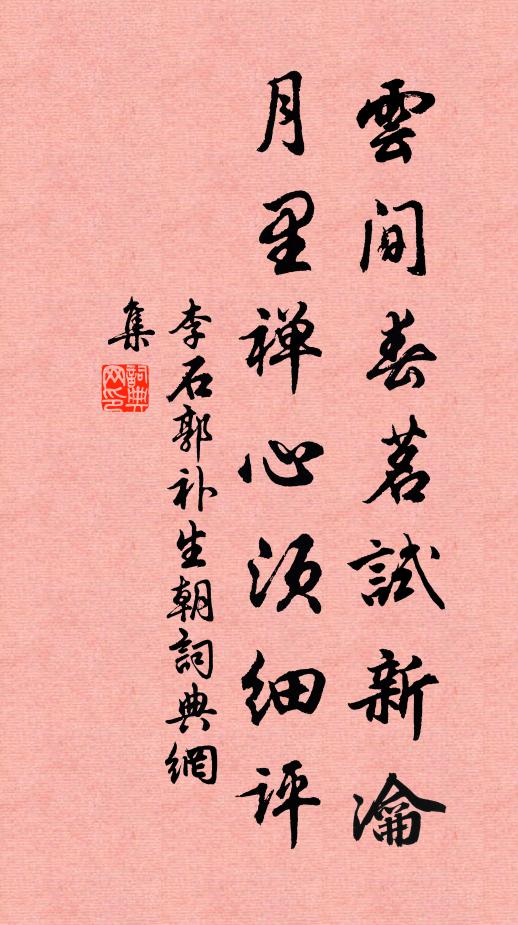 雲間春茗試新瀹
月里禅心须细评
李石郭补生朝詞典網
集
詞典网印